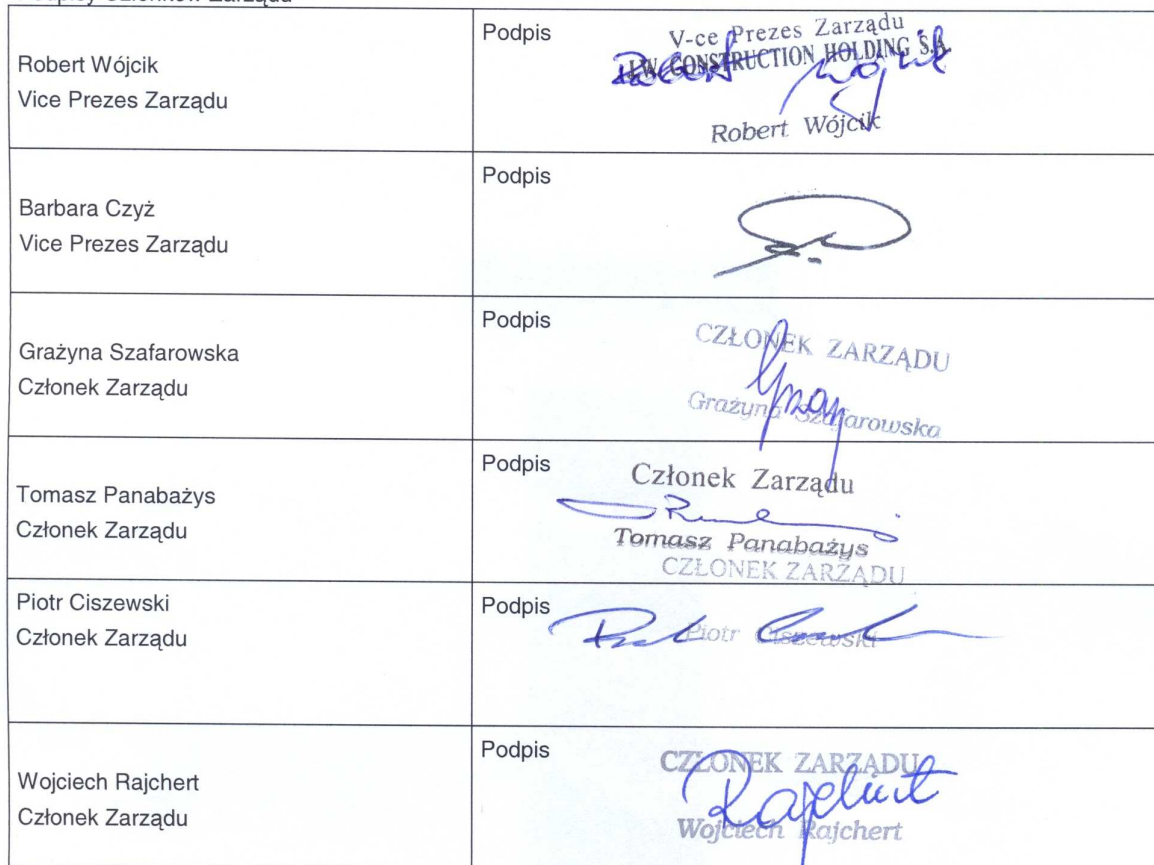 Podpisy Członków Zarządu
Robert Wójcik
Vice Prezes Zarządu
Podpis
V-ce Prezes Zarządu
J.W. CONSTRUCTION HOLDING S.A.
Robert Wójcik
Robert Wójcik
Barbara Czyż
Vice Prezes Zarządu
Podpis
Grażyna Szafarowska
Członek Zarządu
Podpis
CZŁONEK ZARZĄDU
Grażyna Szafarowska
Tomasz Panabażys
Członek Zarządu
Podpis
Członek Zarządu
Tomasz Panabażys
CZŁONEK ZARZĄDU
Piotr Ciszewski
Członek Zarządu
Podpis
Piotr Ciszewski
Wojciech Rajchert
Członek Zarządu
Podpis
CZŁONEK ZARZĄDU
Rajchert
Wojciech Rajchert